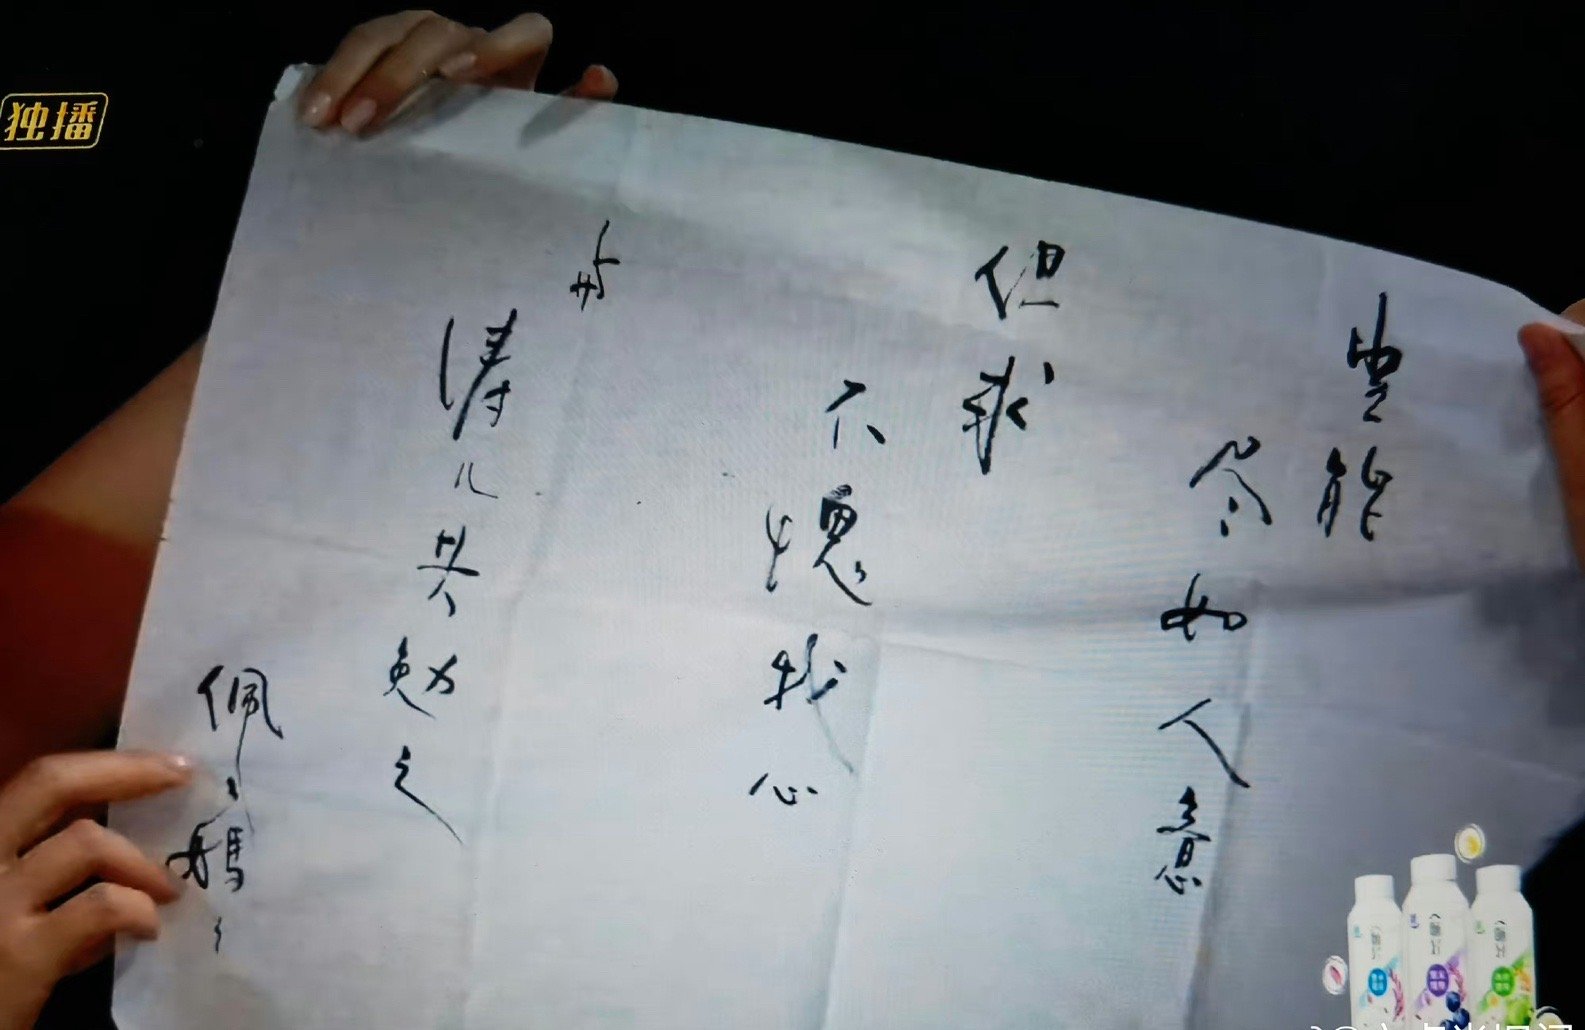 岂能
尽如人意
但求
不愧我心
与
涛儿共勉之
佩佩妈妈
独播